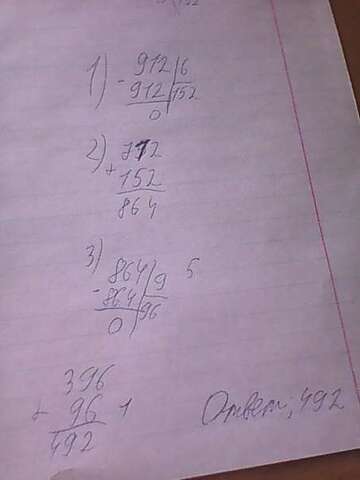 1) 912 | 6
- 912 | 152
0
2) 712
+ 152
864
3) 864 | 9 5
- 864 | 96
0
396
+ 96 1
492
Ответ; 492